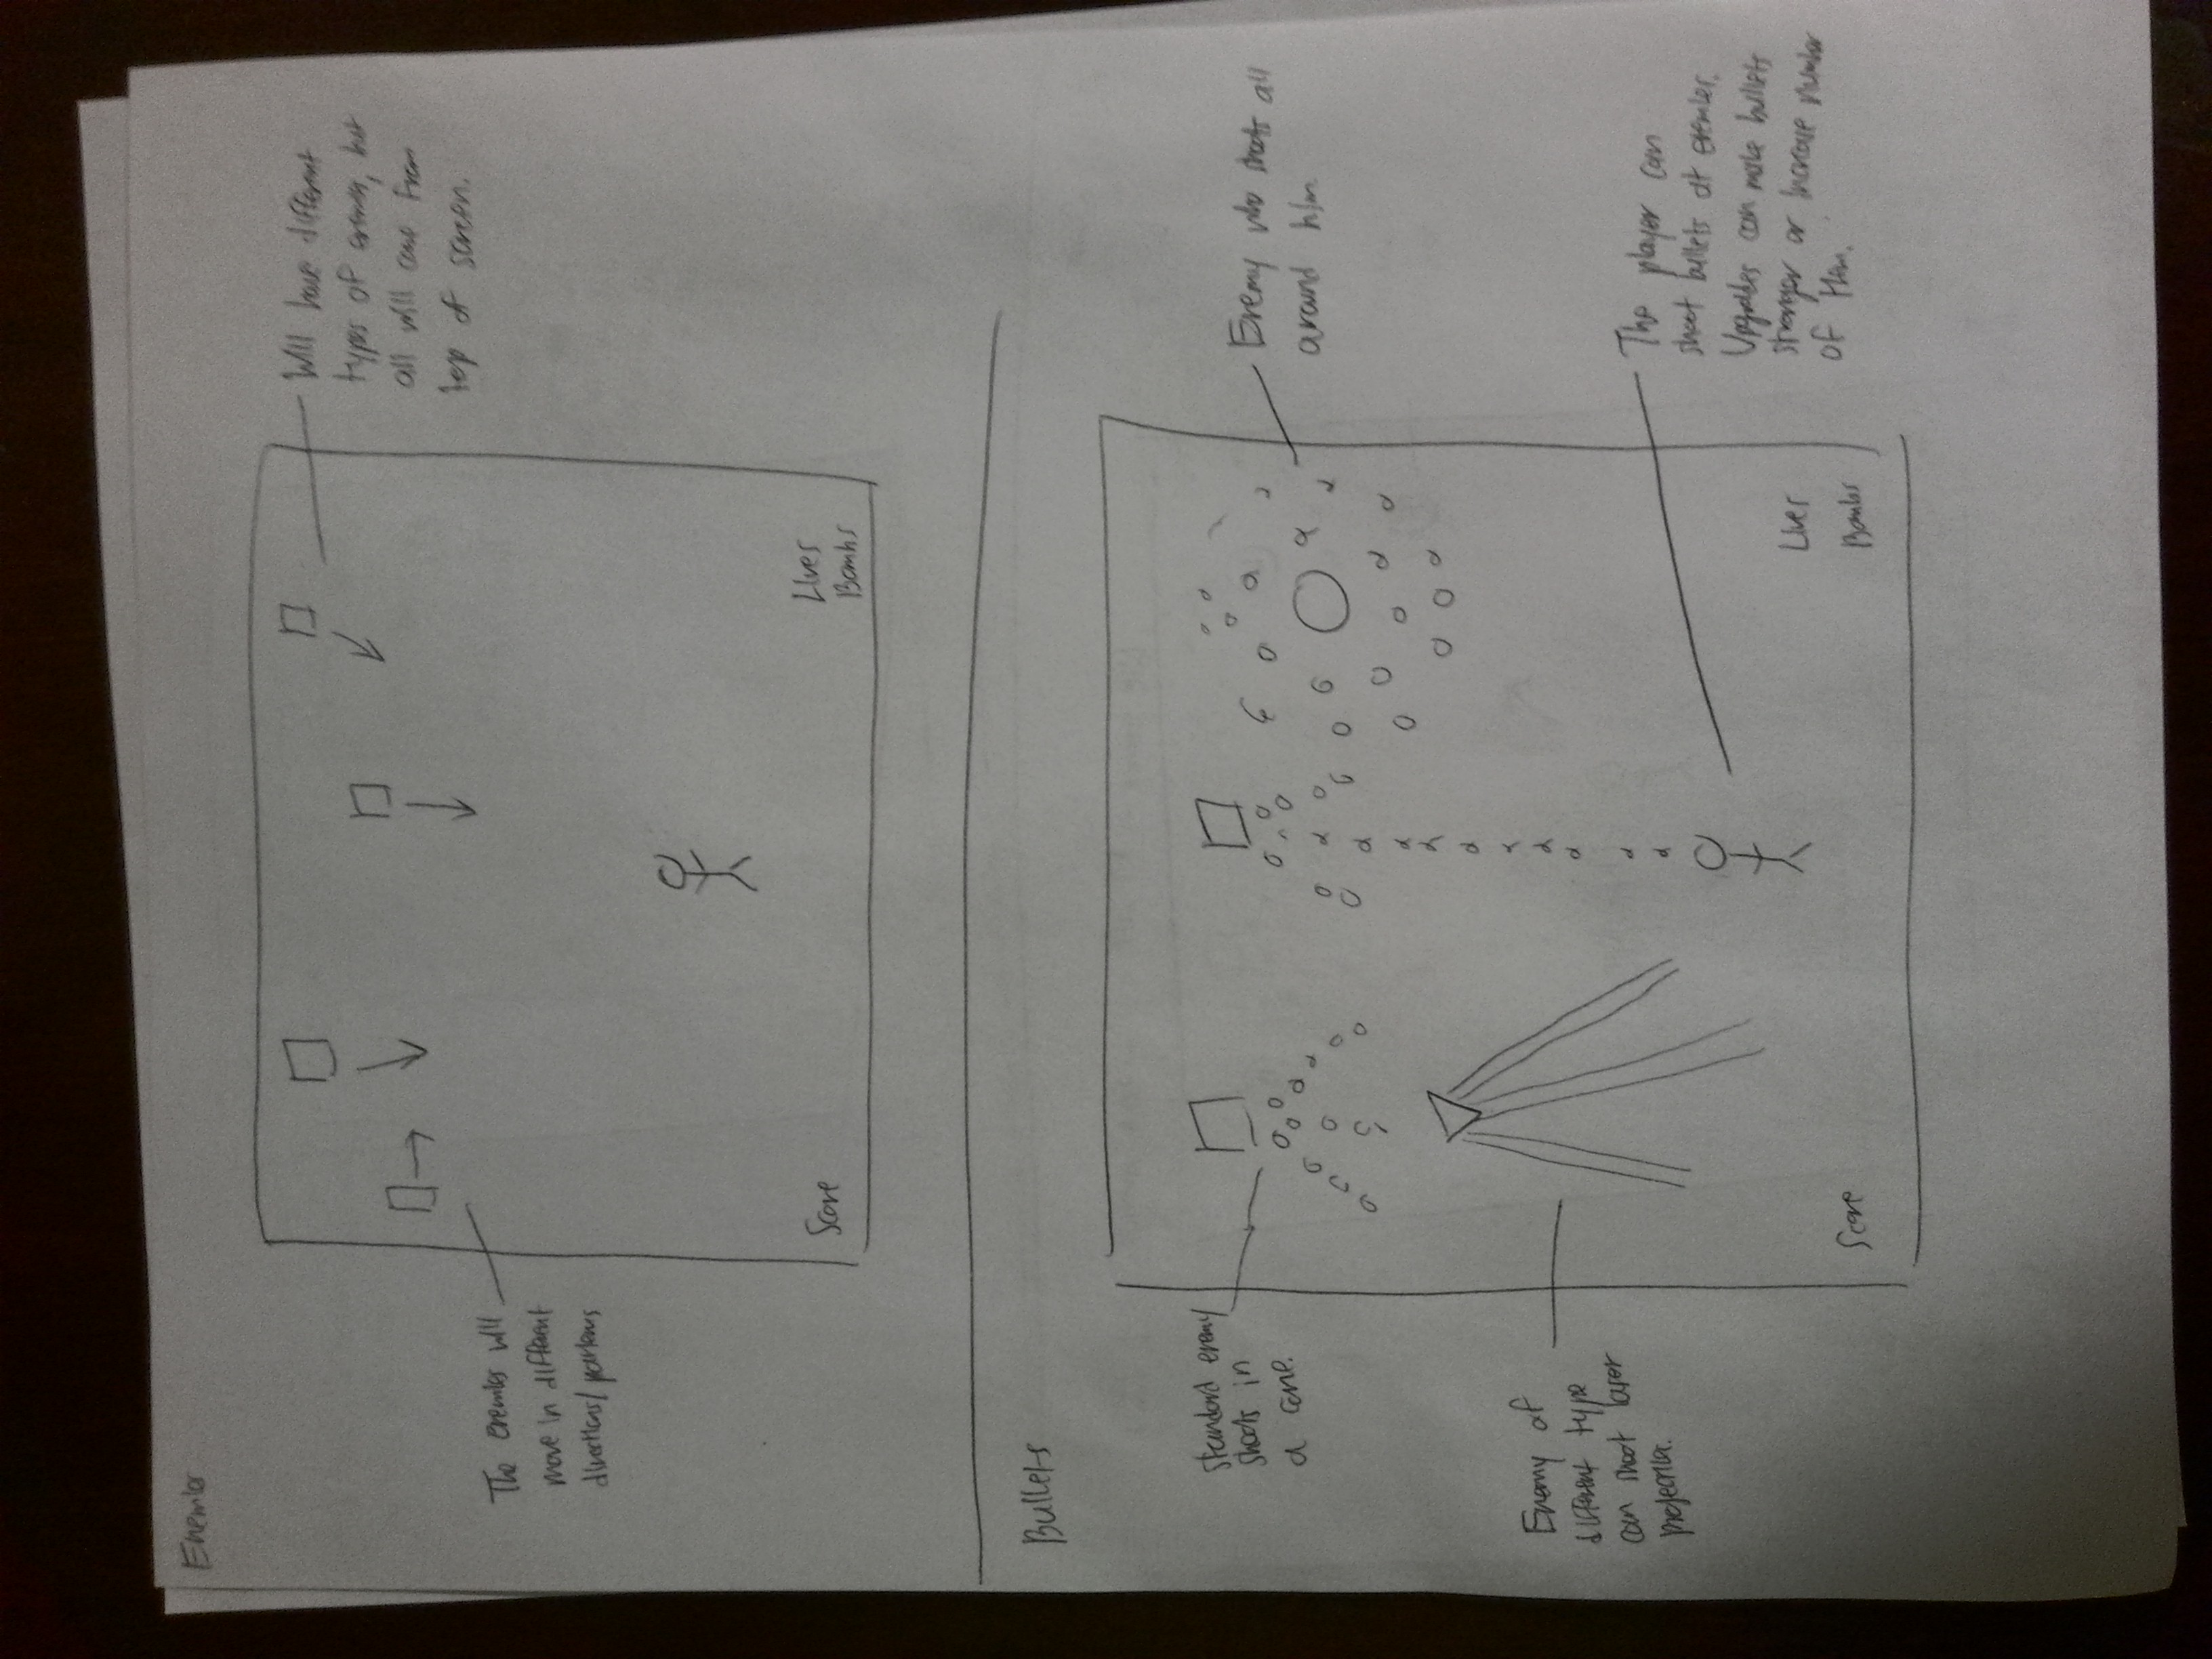 Enemies
Will have different
types of enemies, but
all will come from
top of screen.
The enemies will
move in different
directions/patterns
Score
Lives
Bombs
Bullets
Standard enemy
shoots in
a cone.
Enemy who shoots all
around him.
Enemy of
different type
can shoot laser
projectiles.
The player can
shoot bullets at enemies.
Upgrades can make bullets
stronger or increase number
of them.
Score
Lives
Bombs